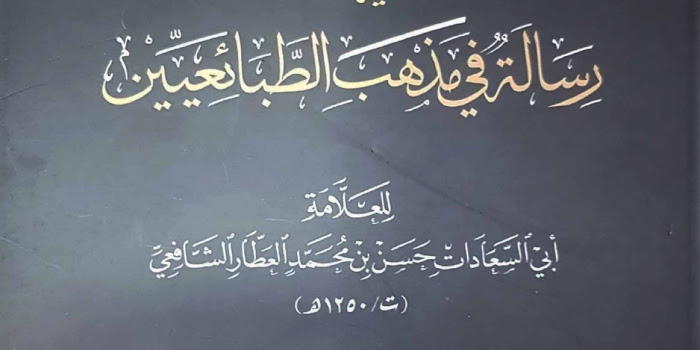 رِسَالَةٌ فِي مَذْهَبِ الطَّبَائِعِيِّينَ
لِلعَلَّامَةِ
أَبِي السَّعَادَاتِ حَسَنِ بْنِ مُحَمَّدٍ العَطَّارِ الشَّافِعِيِّ
(ت/١٢٥٠هـ)